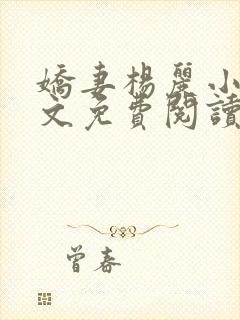 嬌妻楊麗小
文免費閱讀
曾春